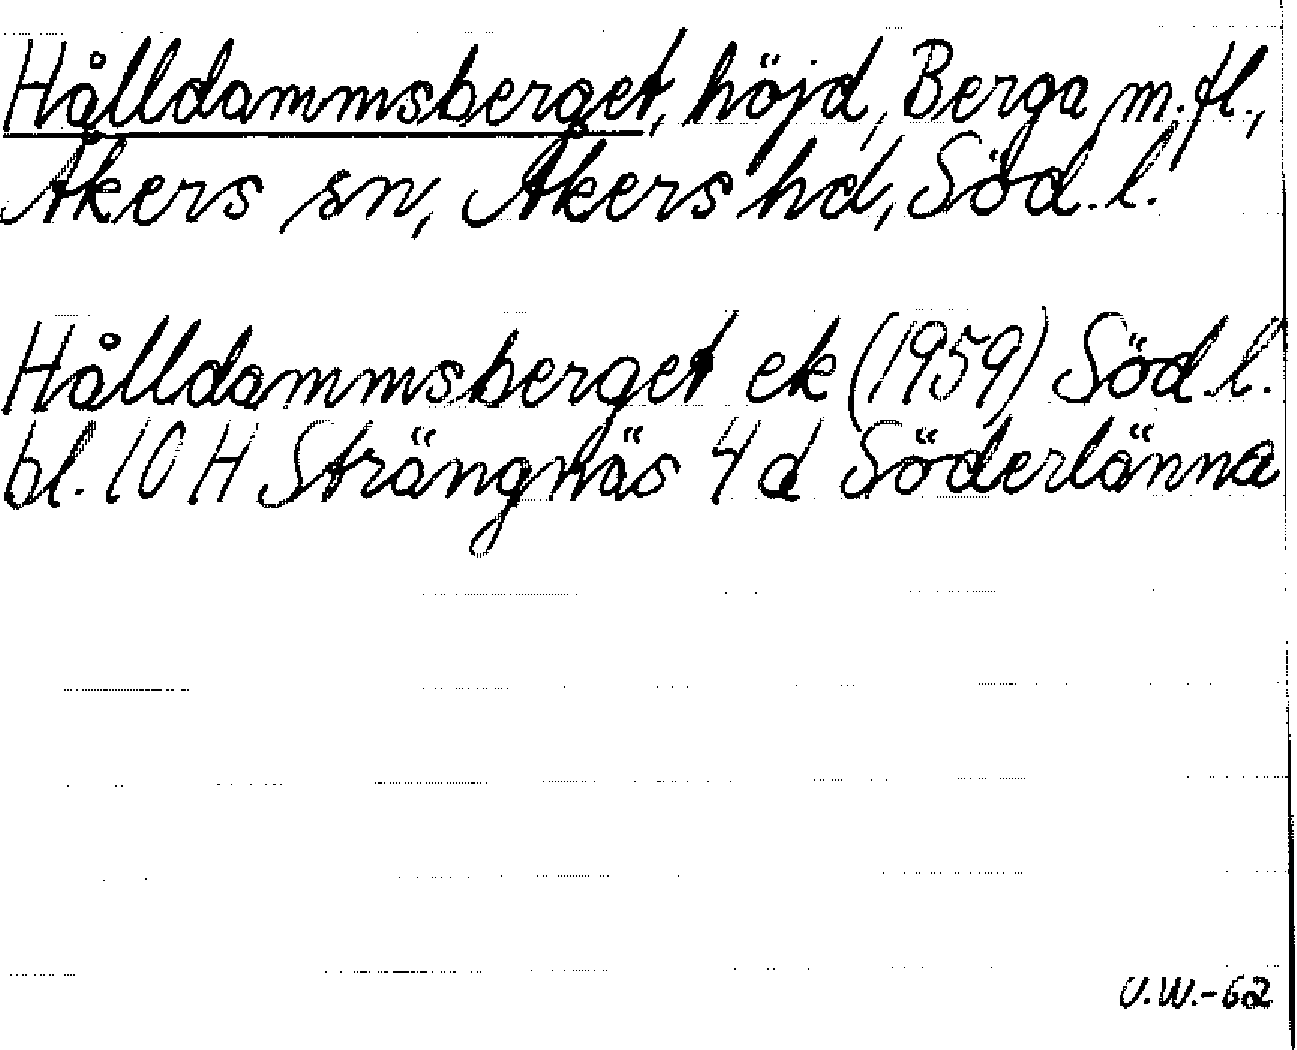 Hålldammsberget, höjd, Berga m.fl.,
Åkers sn, Åkers hd, Söd.l.
Hålldammsberget ek (1959) Söd.l.
bl. 10 H Strängnäs 4 d Söderlänna
U.W.-62